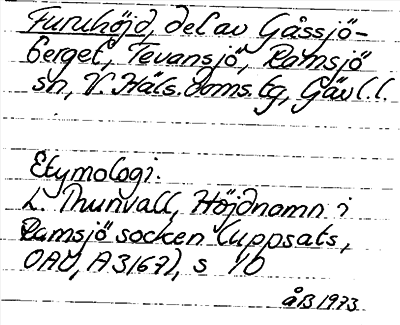 Furuhöjd, del av Gåssjö-
berget, Tevansjö, Ramsjö
sn, V. Häls. doms.tg, Gävl.l.
Etymologi:
L. Thunvall, Höjdnamn i
Ramsjö socken (uppsats,
OAU, A3167), s 10
åB 1973